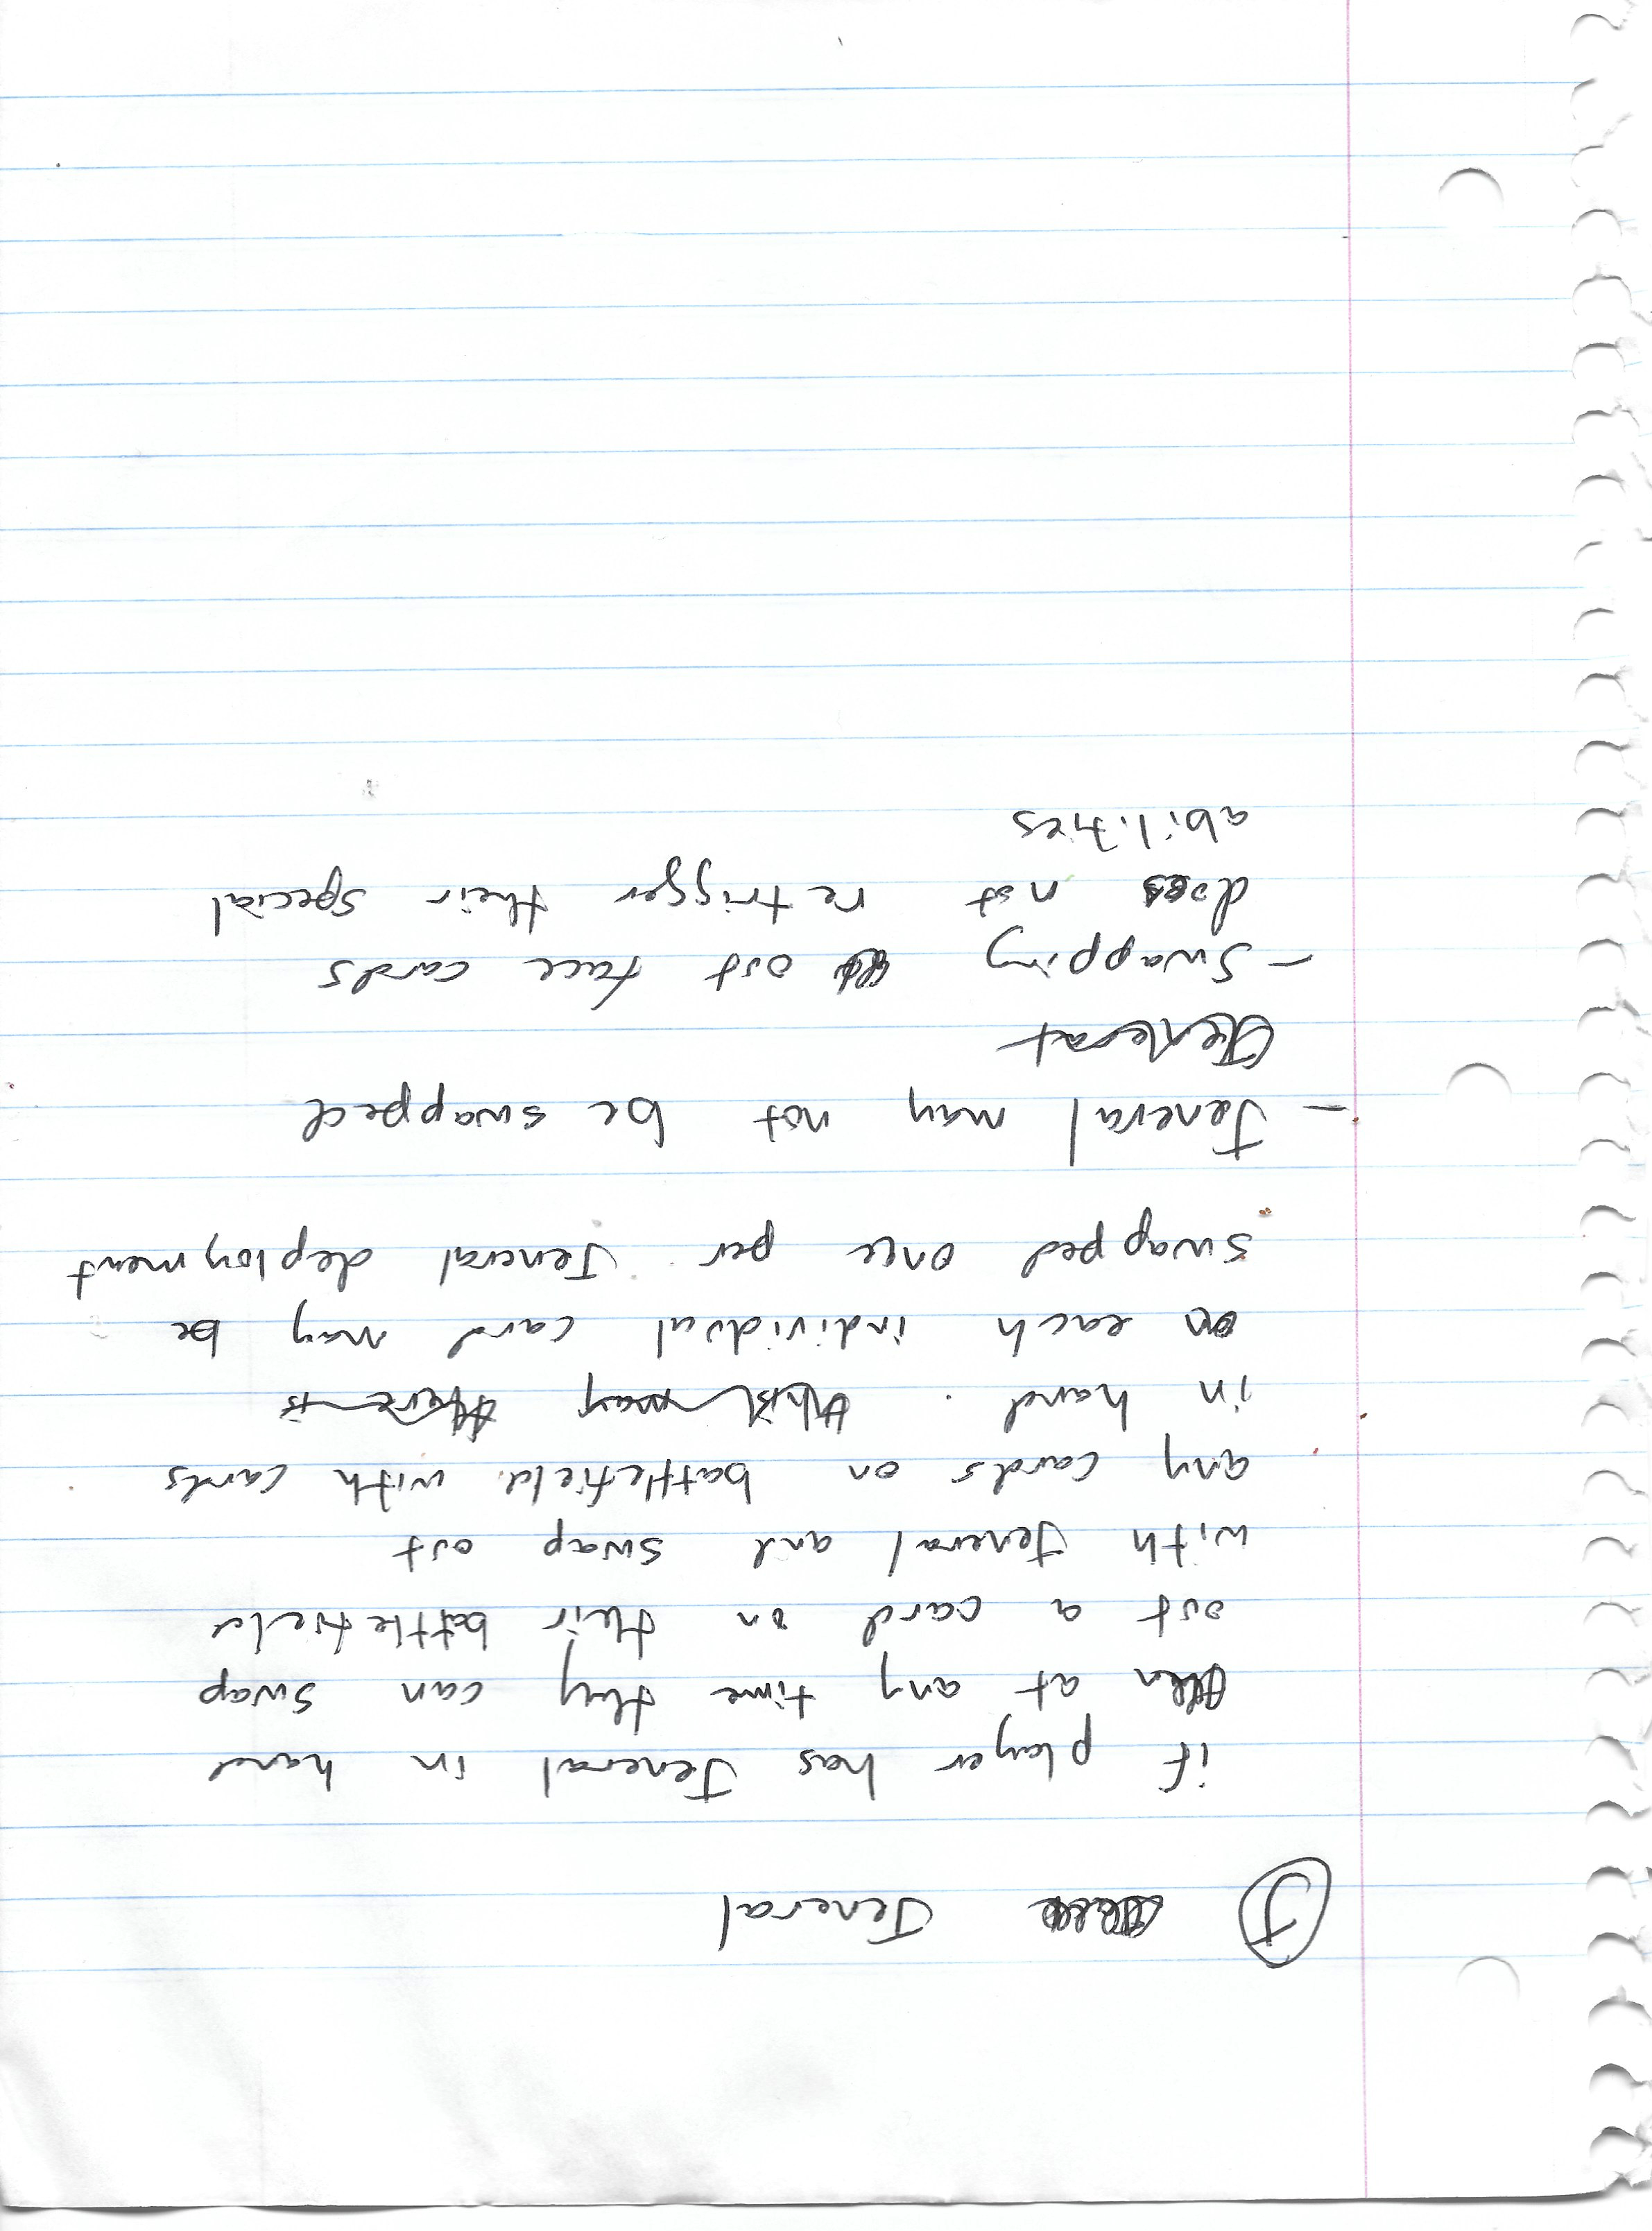 J Jeneral
if player has Jeneral in hand
then at any time they can swap
out a card on their battlefield
with Jeneral and swap out
any cards on battlefield with cards
in hand. this may there is
each individual card may be
swapped once per Jeneral deployment
- Jeneral may not be swapped
General
- Swapping out face cards
does not retrigger their special
abilities